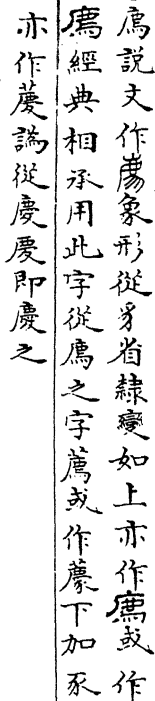 廌説文作廌象形從豸省隸變如上亦作廌或作
廌經典相承用此字從廌之字薦或作藨下加豕
亦作藨譌從慶慶即慶之